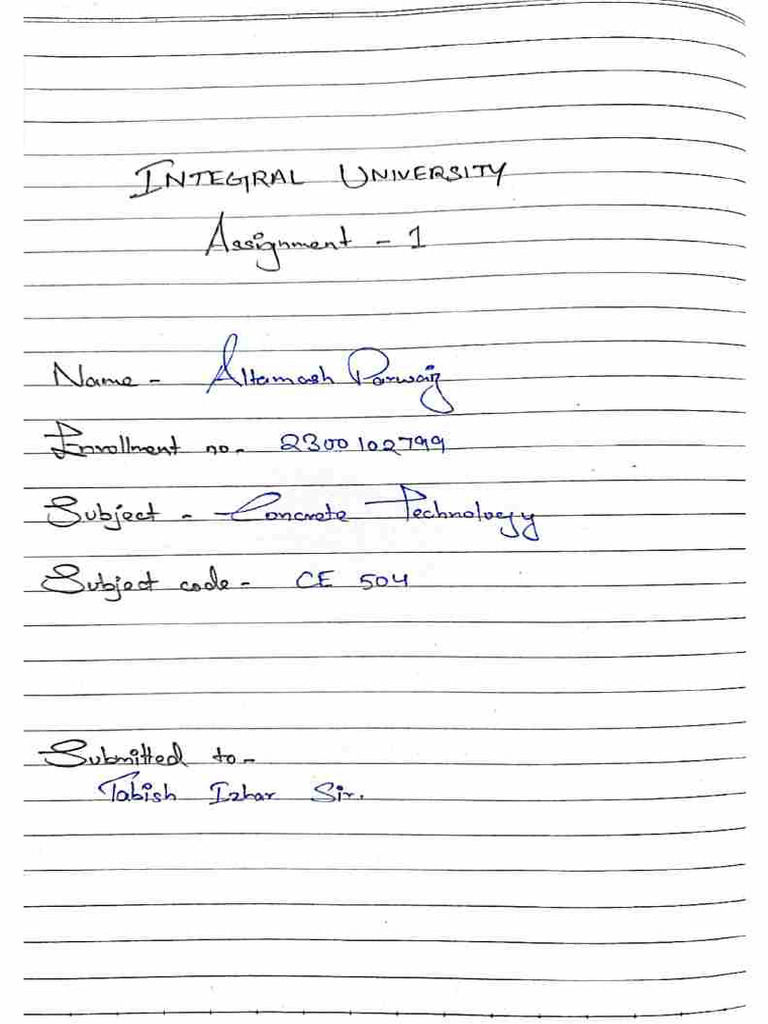 INTEGRAL UNIVERSITY
Assignment - 1
Name - Altamash Parwaiz
Enrollment no. - 2300102799
Subject - Concrete Technology
Subject code - CE 504
Submitted to -
Tabish Izhar Sir.